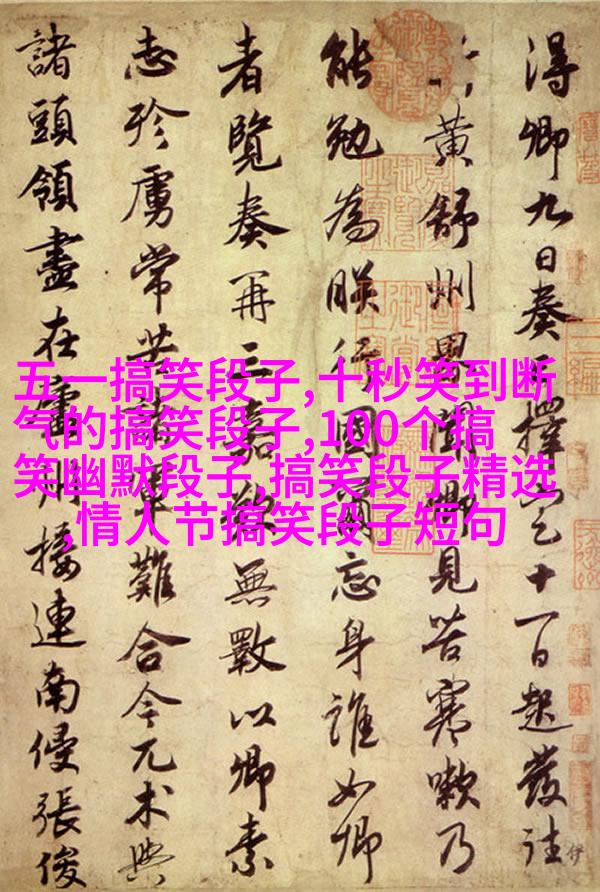 得卿九日奏已擇定十一日起發往
黃舒州界聞卿見苦寒嗽乃
能勉為朕行國爾忘身誰如卿
者覽奏再三嘉歎無斁以卿素
志殄虜常苦諸軍難合今兀朮與
諸頭領盡在廬州接連南侵張俊
五一搞笑段子,十秒笑到断
气的搞笑段子,100个搞
笑幽默段子,搞笑段子精选
,情人节搞笑段子短句